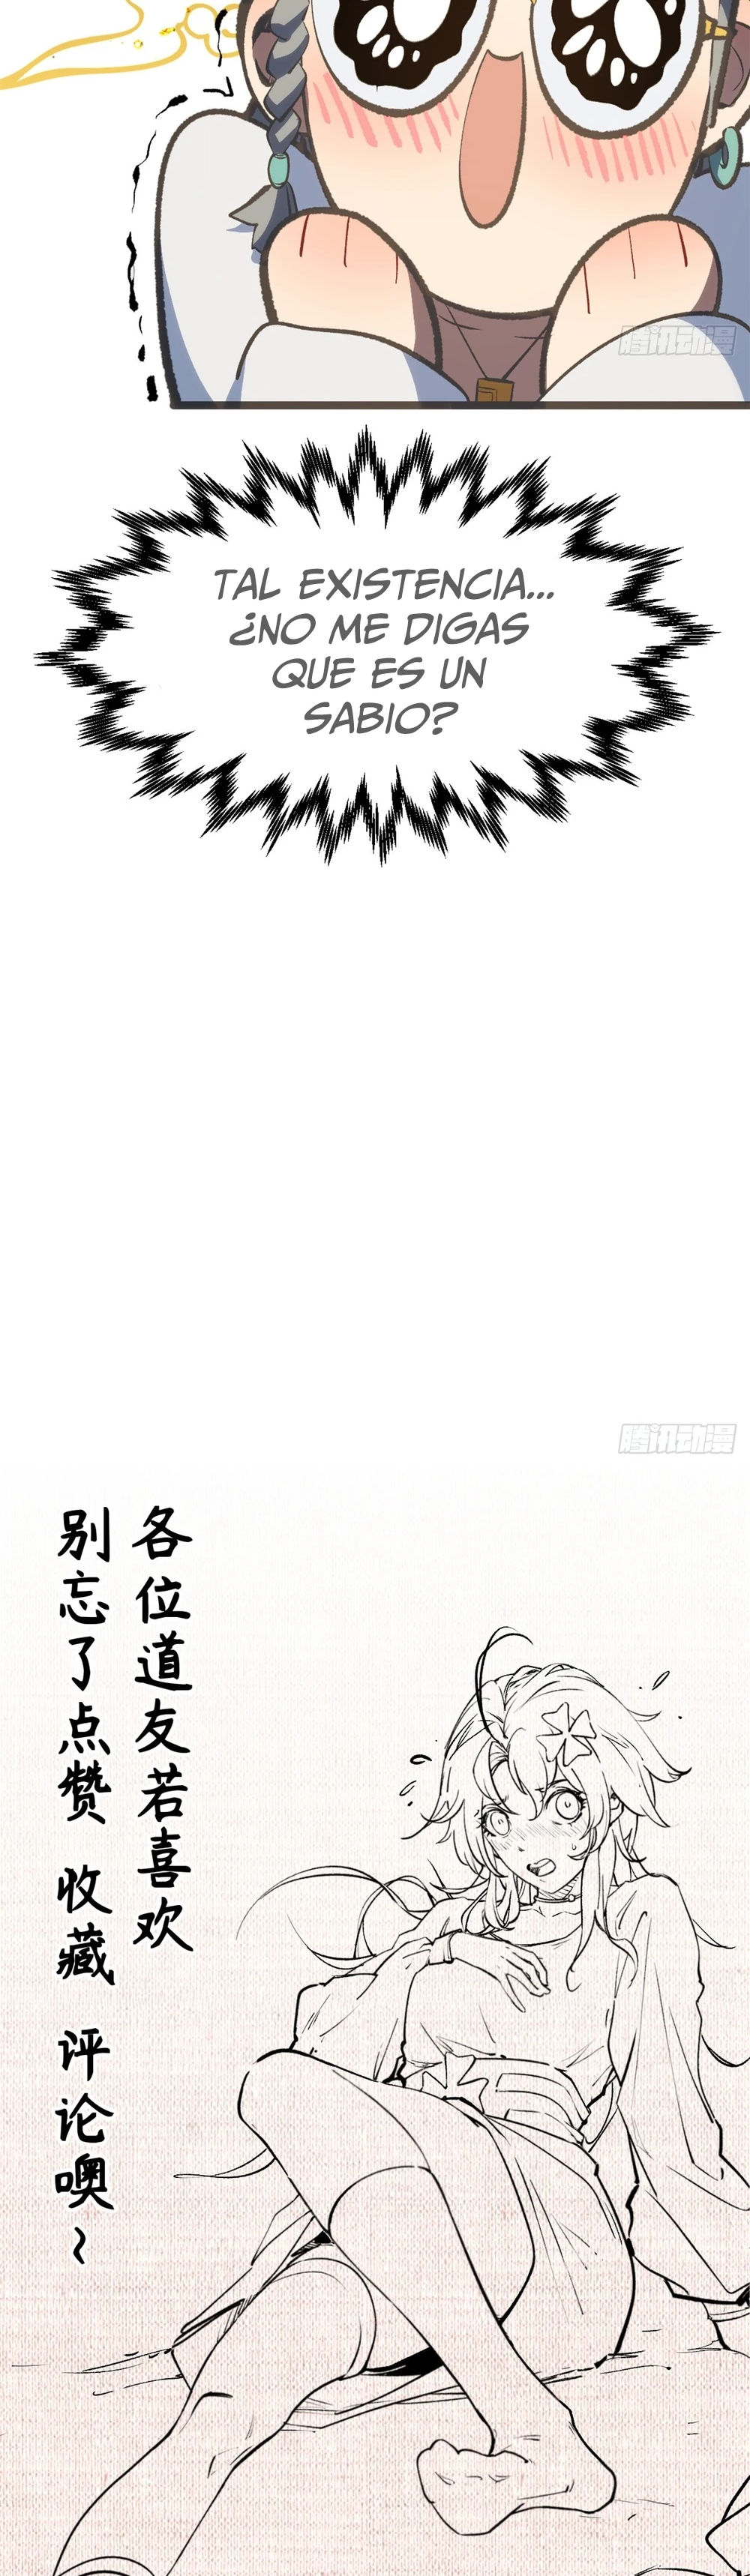 腾讯动漫
TAL EXISTENCIA...
¿NO ME DIGAS
QUE ES UN
SABIO?
腾讯动漫
各位道友若喜欢
别忘了点赞 收藏 评论噢~